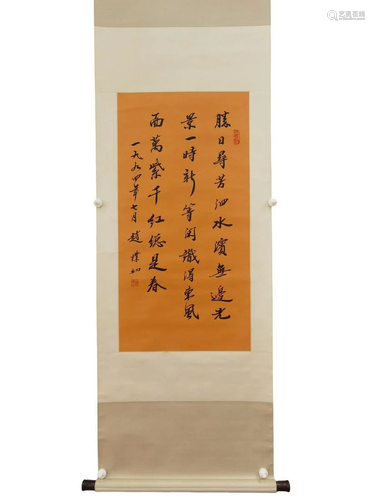 勝日尋芳泗水濱無邊光
景一時新等閑識得東風
面萬紫千紅總是春
一九九四年七月 趙樸初